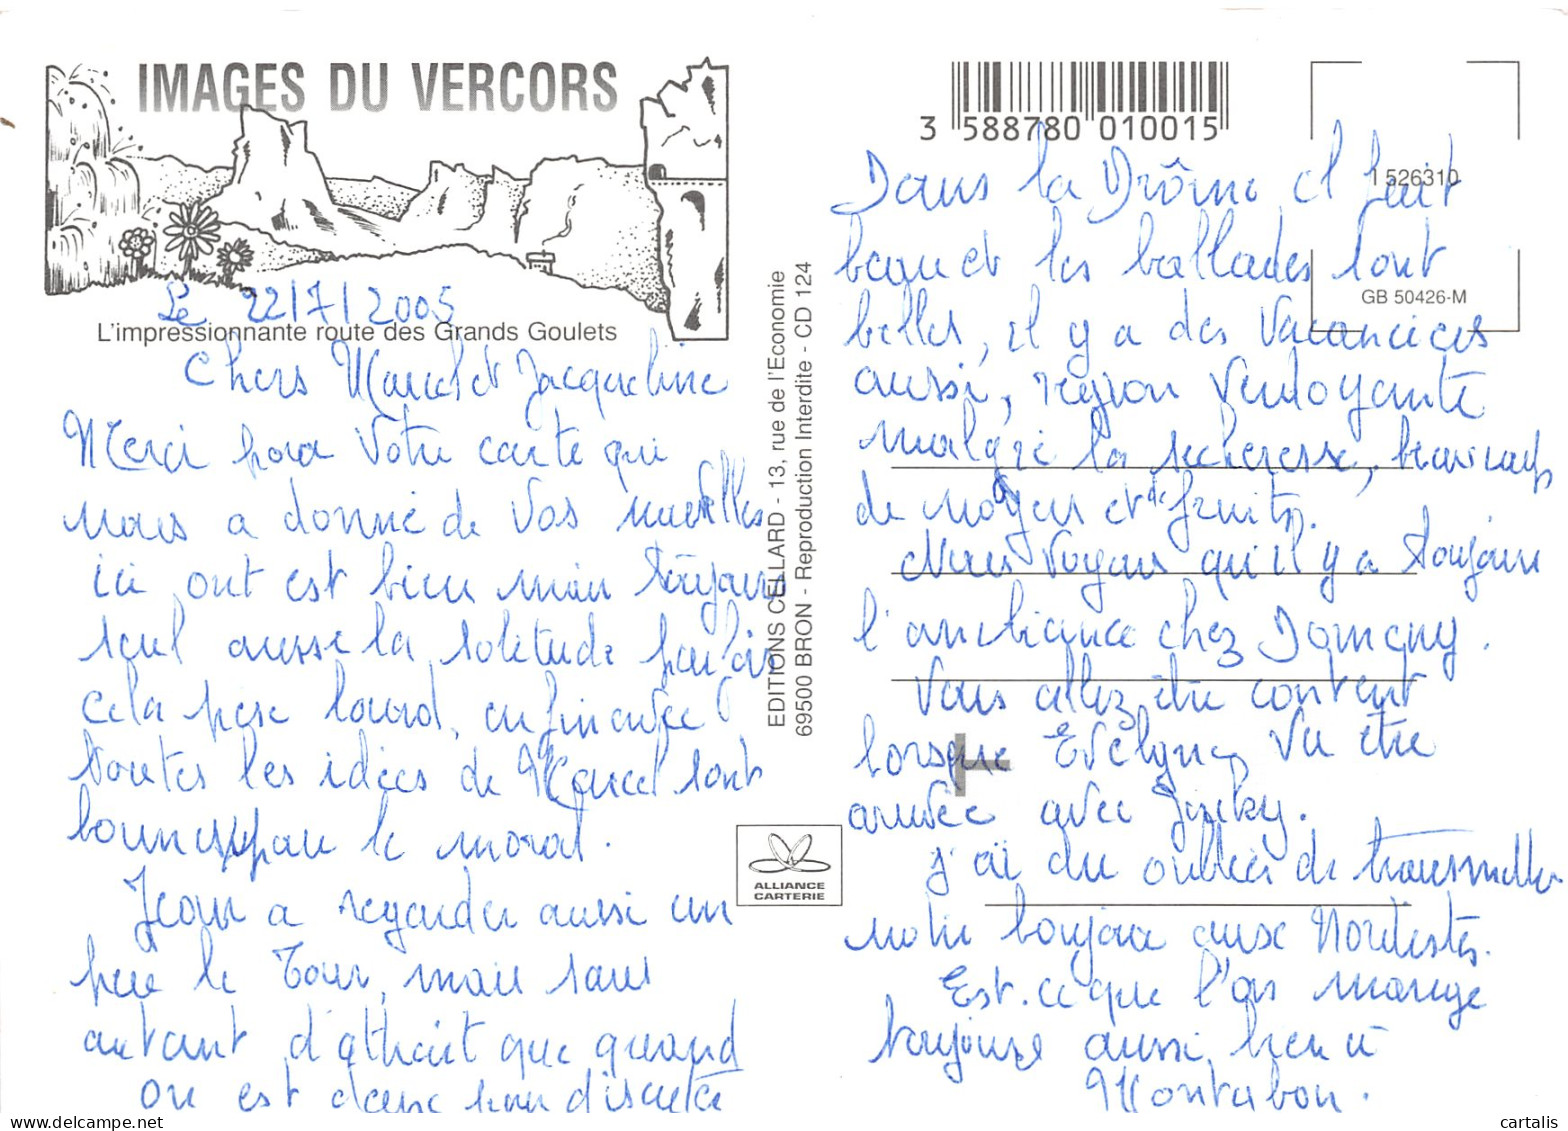 IMAGES DU VERCORS
L'impressionnante route des Grands Goulets
Le 22/7/2005
Chers Marcel et Jacqueline
Merci pour votre carte qui
nous a donné de vos nouvelles
ici ont est bien mais toujours
seul aussi la solitude parfois
cela pese lourd, enfin avec
toutes les idées de Marcel sont
bonnes pour le moral.
Jean a regarder aussi un
peu le Tour, mais sans
autant d'attrait que quand
on est dans
EDITIONS CELLARD - 13, rue de l'Economie
69500 BRON - Reproduction Interdite - CD 124
ALLIANCE
CARTERIE
3 588780 010015
1 526310
GB 50426-M
Dans la Drôme il fait
beau et les ballades sont
belles, il y a des vacanciers
aussi, région verdoyante
malgré la secheresse, beaucoup
de noyers et de fruits.
Nous voyons qu'il y a toujours
l'ambiance chez Domeny.
Vous allez être content
lorsque Evelyne va être
arrivée avec
j'ai du oublier de transmettre
notre bonjour aux
Est-ce que l'on mange
toujours aussi bien à
Montabon.
cartalis